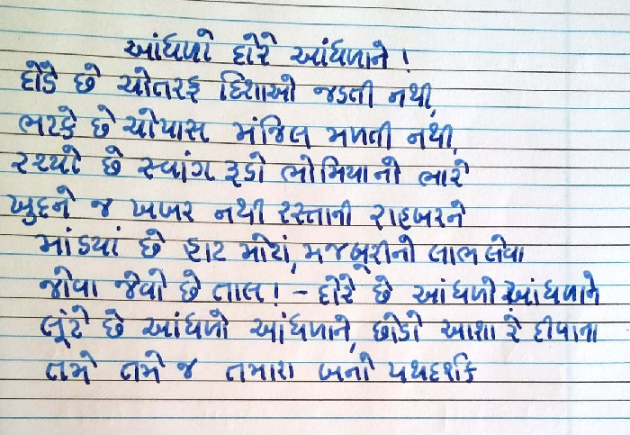 આંધળો દોરે આંધળાને !
દોડે છે ચોતરફ દિશાઓ જડતી નથી,
ભટકે છે ચોપાસ મંજિલ મળતી નથી,
રચ્યો છે સ્વાંગ રૂડો ભોમિયાનો ભારે
ખુદને જ ખબર નથી રસ્તાની રાહબરને
માંડયાં છે હાટ મોટાં, મજબૂરીનો લાભ લેવા
જોવા જેવો છે તાલ ! - દોરે છે આંધળો આંધળાને
લૂંટે છે આંધળો આંધળાને, છોડો આશા રે દીવાના
તમે તમે જ તમારા બનો પથદર્શક